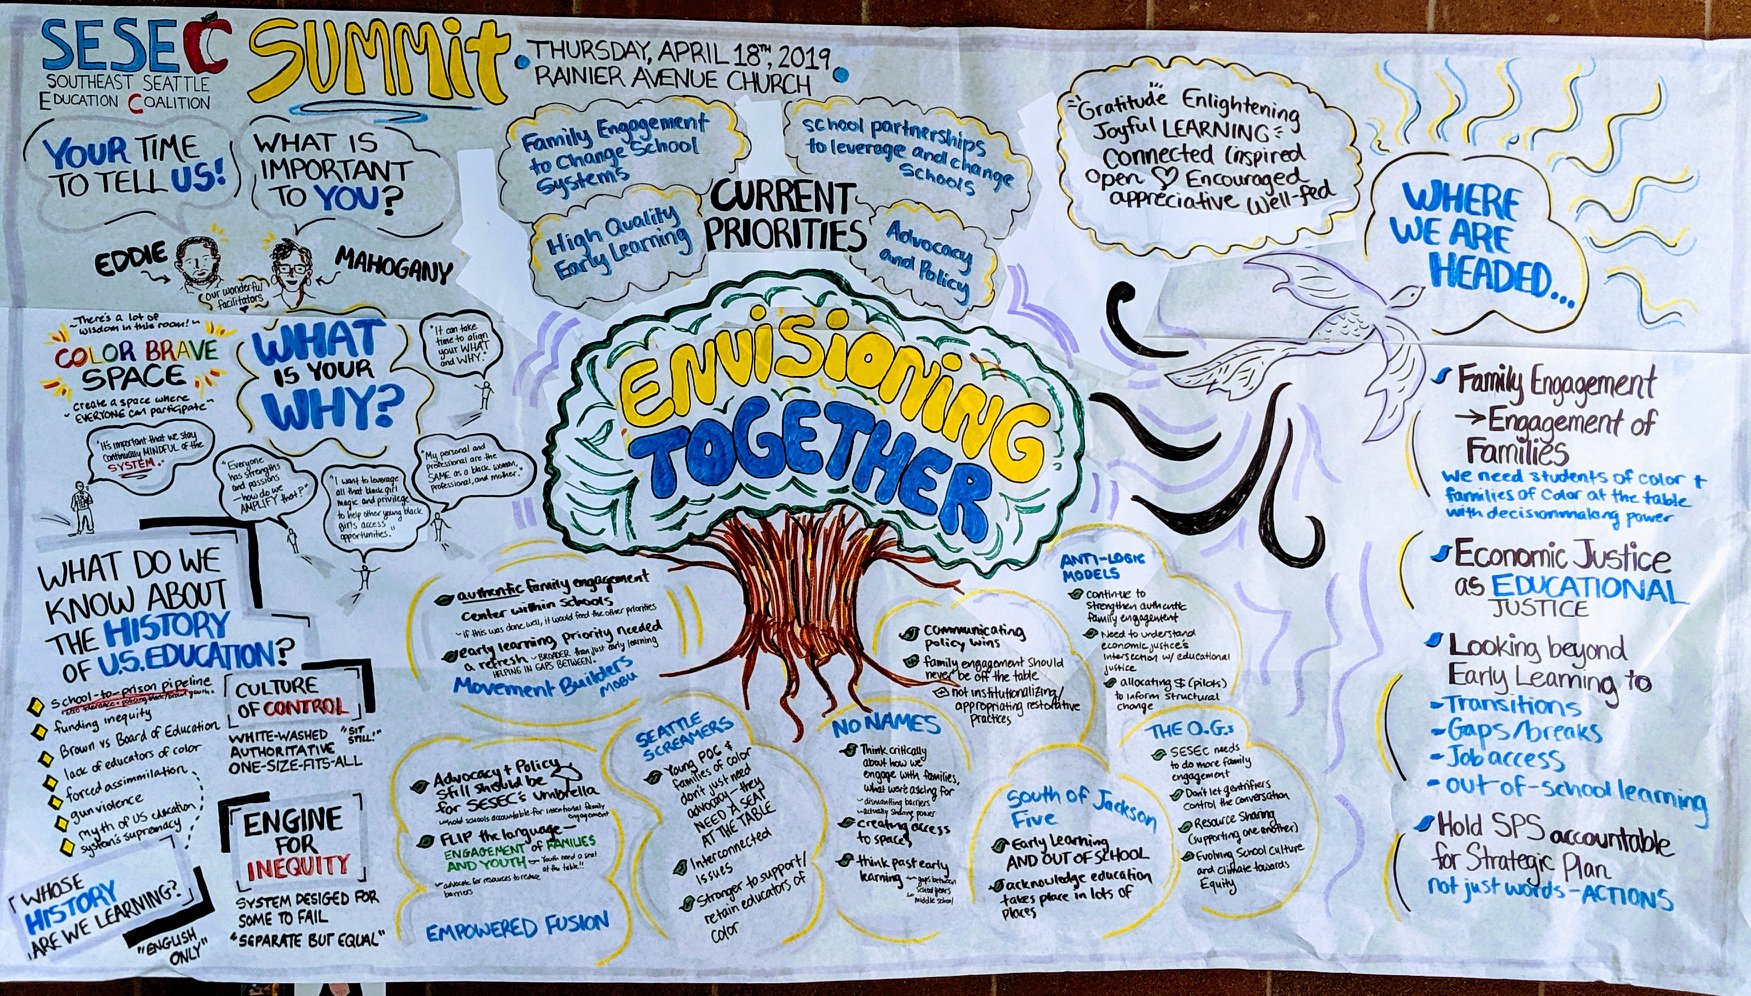 SESEC
SOUTHEAST SEATTLE
EDUCATION COALITION
SUMMit
THURSDAY, APRIL 18TH, 2019
RAINIER AVENUE CHURCH
YOUR TIME
TO TELL US!
WHAT IS
IMPORTANT
TO YOU?
EDDIE
MAHOGANY
our wonderful
facilitators
Family Engagement
to Change School
Systems
school partnerships
to leverage and change
Schools
CURRENT
PRIORITIES
High Quality
Early Learning
Advocacy
and Policy
Gratitude Enlightening
Joyful LEARNING
Connected Inspired
Open Encouraged
appreciative Well-fed
WHERE
WE ARE
HEADED...
~There's a lot of
wisdom in this room!~
COLOR BRAVE
SPACE
create a space where
~EVERYONE can participate~
WHAT
IS YOUR
WHY?
"It can take
time to align
your WHAT
and WHY."
"It's important that we stay
continually MINDFUL of the
SYSTEM."
"Everyone
has strengths
and passions
—how do we
AMPLIFY that?"
"I want to leverage
all that black girl
magic and privilege
to help other young black
girls access
opportunities."
"My personal and
professional are the
SAME as a black woman,
professional, and mother."
ENViSiONiNG
TOGETHER
WHAT DO WE
KNOW ABOUT
THE HISTORY
OF U.S. EDUCATION?
school-to-prison pipeline
funding inequity
Brown vs Board of Education
lack of educators of color
forced assimmilation
gun violence
myth of US education
system's supremacy
"WHOSE
HISTORY
ARE WE LEARNING?"
"ENGLISH
ONLY"
CULTURE
OF CONTROL
WHITE-WASHED
"SIT
STILL!"
AUTHORITATIVE
ONE-SIZE-FITS-ALL
ENGINE
FOR
INEQUITY
SYSTEM DESIGED FOR
SOME TO FAIL
"SEPARATE BUT EQUAL"
authentic family engagement
center within schools
~ if this was done well, it would feed the other priorities
early learning priority needed
a refresh ~ BROADER than just early learning
HELPING IN GAPS BETWEEN.
Movement Builders
MOBU
Advocacy + Policy
still should be
for SESEC's umbrella
~hold schools accountable for intentional family
engagement
FLIP the language—
ENGAGEMENT of FAMILIES
AND YOUTH ~ Youth need a seat
at the table!!
~ advocate for resources to reduce
barriers
EMPOWERED FUSION
SEATTLE
SCREAMERS
Young POC &
families of color
don't just need
advocacy—they
NEED A SEAT
AT THE TABLE
Interconnected
issues
Stronger to support/
retain educators of
color
NO NAMES
Think critically
about how we
engage with families,
what we're asking for
~dismantling barriers
~actually sharing power
creating access
to spaces
think past early
learning ~ gaps between
school years
middle school
communicating
policy wins
family engagement should
never be off the table
not institutionalizing/
appropriating restorative
practices
ANTI-LOGIC
MODELS
continue to
strengthen authentic
family engagement
Need to understand
economic justice's
intersection w/ educational
justice
allocating $ (pilots)
to inform structural
change
South of Jackson
Five
Early Learning
AND OUT OF SCHOOL
acknowledge education
takes place in lots of
places
THE O.G.s
SESEC needs
to do more family
engagement
Don't let gentrifiers
control the conversation
Resource Sharing
(supporting one another)
Evolving School culture
and climate towards
Equity
Family Engagement
→Engagement of
Families
we need students of color +
families of color at the table
with decisionmaking power
Economic Justice
as EDUCATIONAL
JUSTICE
Looking beyond
Early Learning to
-Transitions
-Gaps/breaks
-Job access
-out-of-school learning
Hold SPS accountable
for Strategic Plan
not just words—ACTIONS